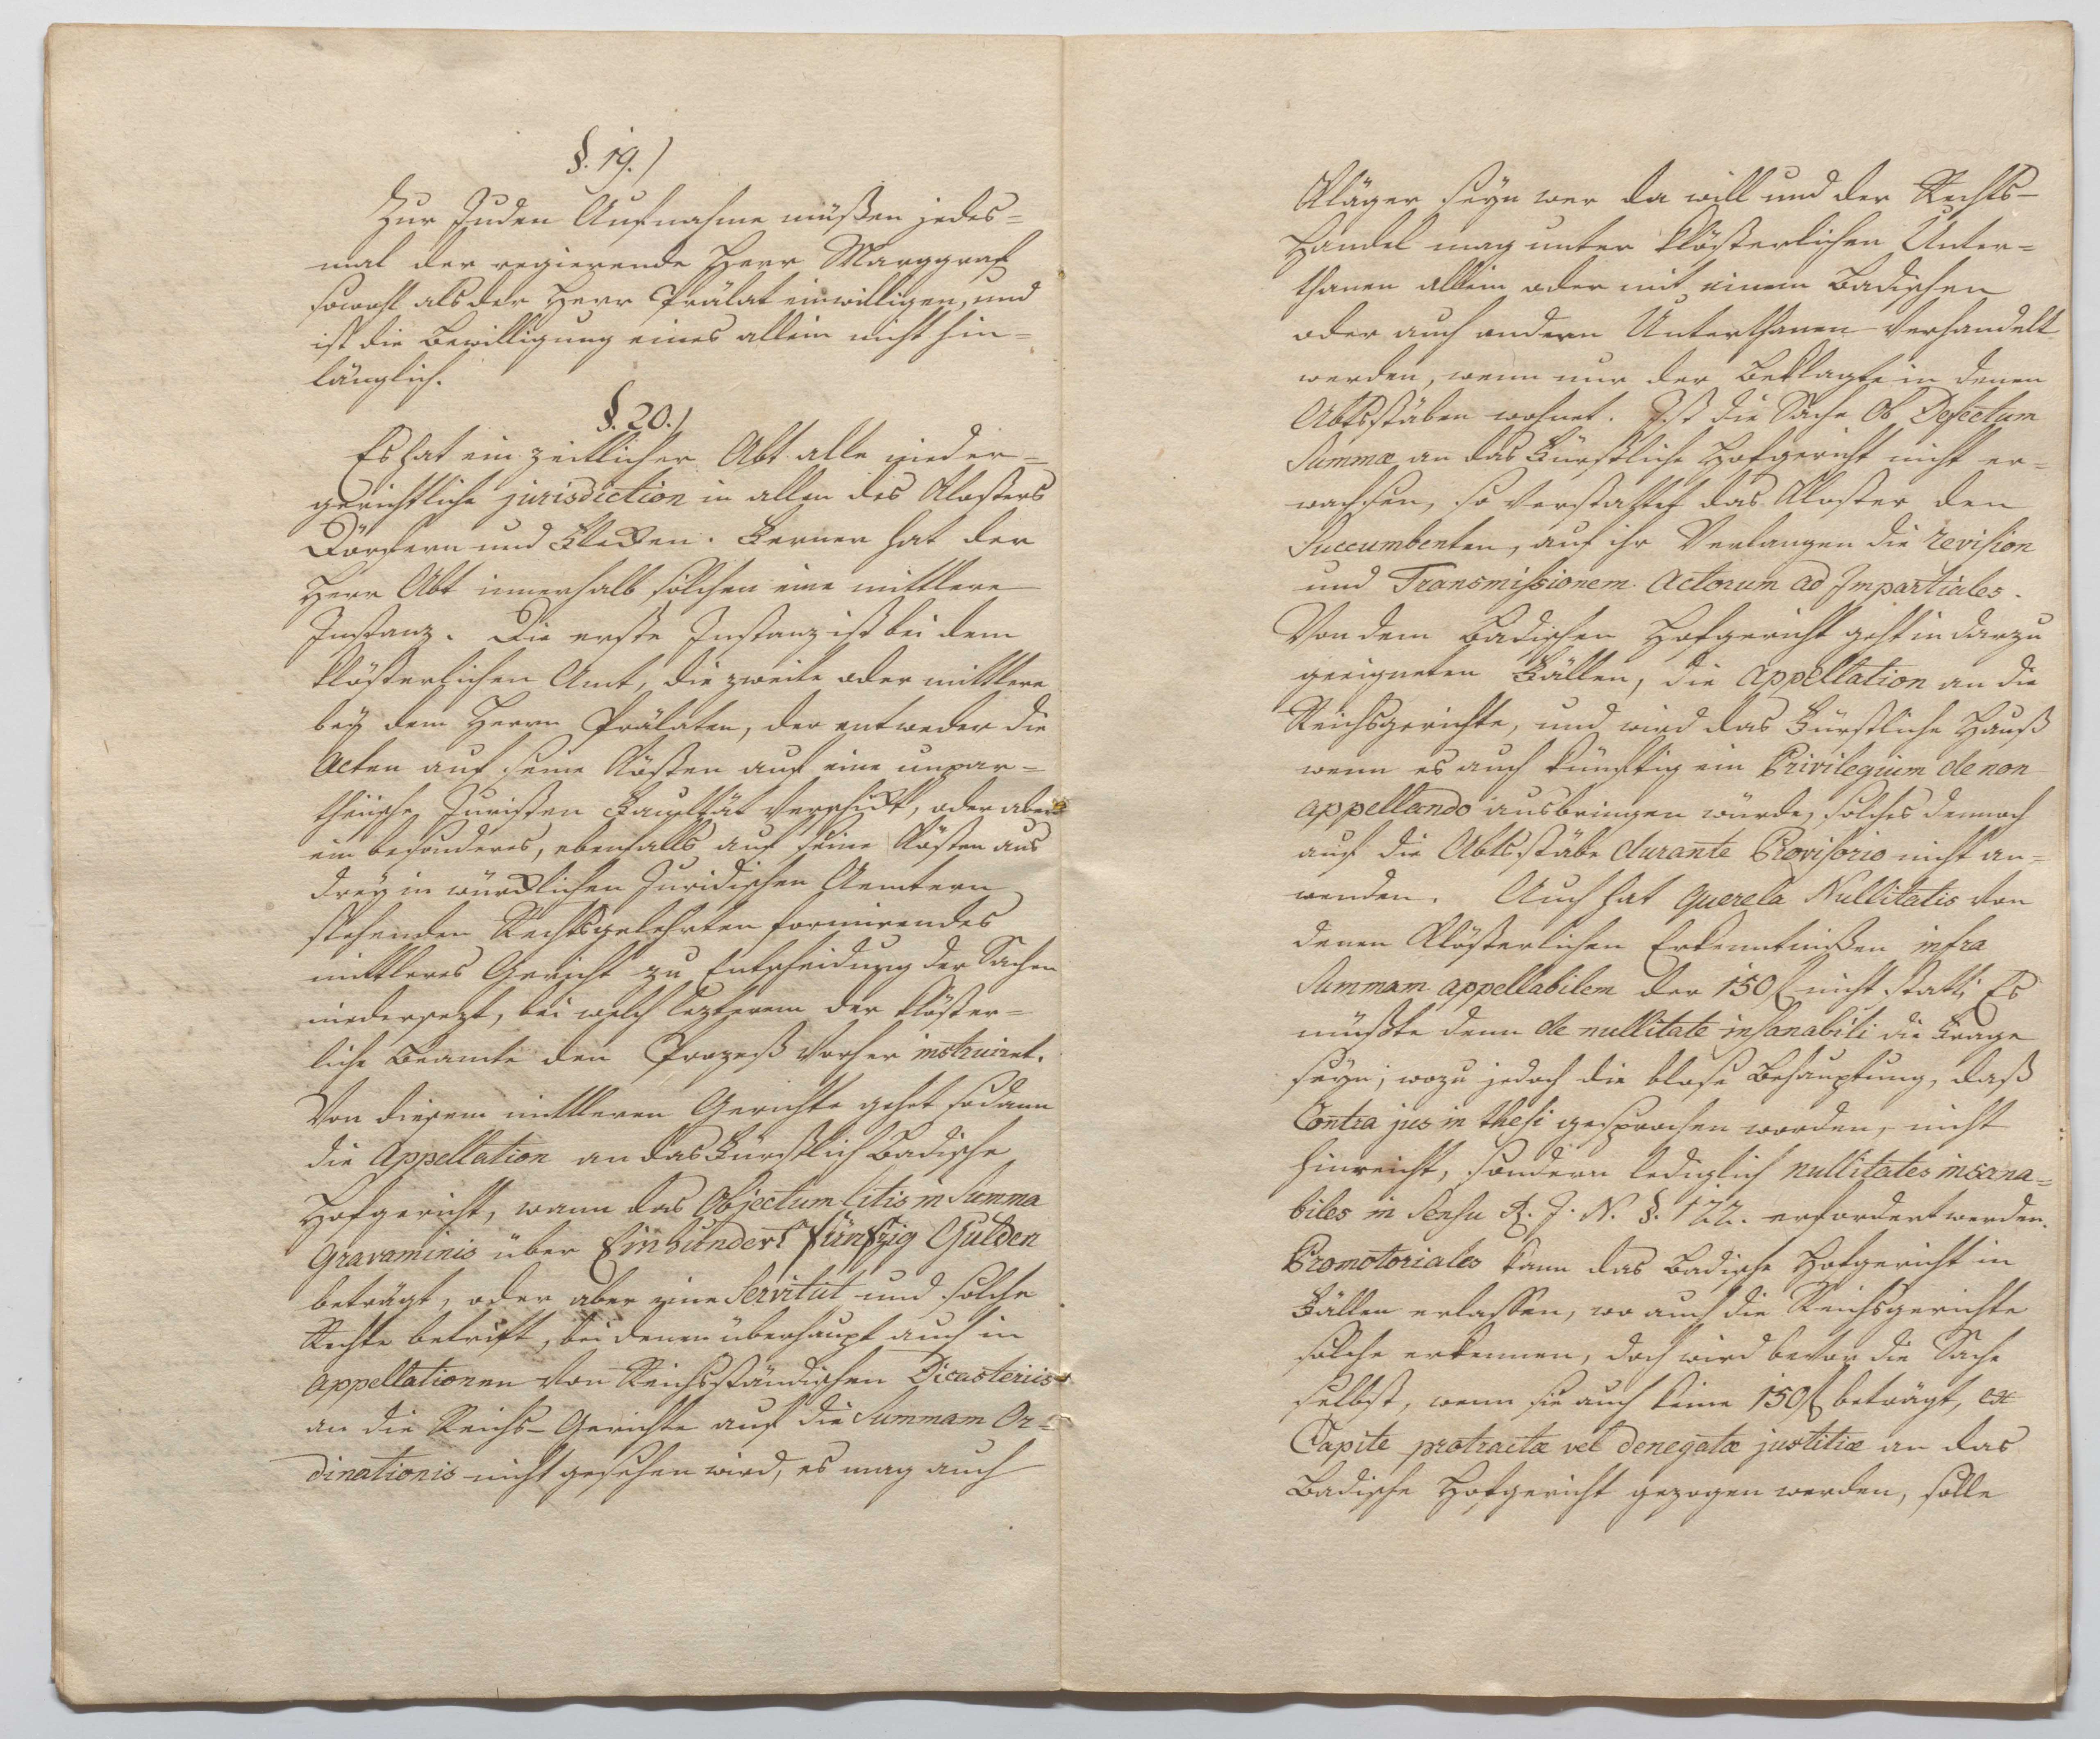 §. 19.)
Zur Juden Aufnahme müßen jedes=
mal der regierende Herr Marggraf
sowohl als der Herr Prälat einwilligen, und
ist die Bewilligung eines allein nicht hin=
länglich.
§. 20.)
Es hat ein zeitlicher Abt alle nieder=
gerichtliche jurisdiction in allen des Klosters
Dörfern und Flecken. Ferner hat der
Herr Abt innerhalb solchen eine mittlere
Instanz. Die erste Instanz ist bei dem
klösterlichen Amt, die zweite oder mittlere
bey dem Herrn Prälaten, der entweder die
Acten auf seine Kösten auf eine unpar=
theiische Juristen Facultät verschickt, oder aber
ein besonderes, ebenfalls auf seine Kösten aus
drey in würcklichen Juridischen Aemtern
stehenden Rechtsgelehrten formirendes
mittleres Gericht zu Entscheidung der Sachen
niedersezt, bei welch lezterem der klöster=
liche Beamte den Prozeß vorher instruiret.
Von diesem mittleren Gerichte gehet sodann
die Appellation an das Fürstlich Badische
Hofgericht, wann das Objectum litis in Summa
Gravaminis über Einhundert fünfzig Gulden
beträgt, oder aber eine Servitut und solche
Rechte betrift, bei denen überhaupt auch in
Appellationen von Reichsständischen Dicasteriis
an die Reichs-Gerichte auf die Summam Or=
dinationis nicht gesehen wird, es mag auch
Kläger seyn wer da will und der Rechts-
Handel mag unter klösterlichen Unter=
thanen allein oder mit einem Badischen
oder auch andern Unterthanen verhandelt
werden, wenn nur der Beklagte in denen
Abtsstäben wohnet. Ist die Sache Ob Defectum
Summæ an das Fürstliche Hofgericht nicht er=
wachsen, so verstattet das Kloster den
Succumbenten, auf ihr Verlangen die revision
und Transmissionem Actorum ad Impartiales.
Von dem Badischen Hofgericht geht in darzu
geeigneten Fällen, die Appellation an die
Reichsgerichte, und wird das Fürstliche Hauß
wenn es auch künftig ein Privilegium de non
appellando ausbringen würde, solches dennoch
auf die Abtsstäbe durante Provisorio nicht an=
wenden. Auch hat querela Nullitatis von
denen Klösterlichen Erkenntnißen infra
Summam appellabilem der 150 f nicht statt; Es
müßte denn de nullitate insanabili die Frage
seyn; wozu jedoch die blose Behauptung, daß
Contra jus in thesi gesprochen worden, nicht
hinreicht, sondern lediglich nullitates insana=
biles in Sensu R. J. N. §. 122. erfordert werden.
Promotoriales kann das Badische Hofgericht in
Fällen erlassen, wo auch die Reichsgerichte
solche erkennen, doch wird bevor die Sache
selbst, wenn sie auch keine 150 f beträgt, ex
Capite protractæ vel denegatæ justitiæ an das
Badische Hofgericht gezogen werden, solle